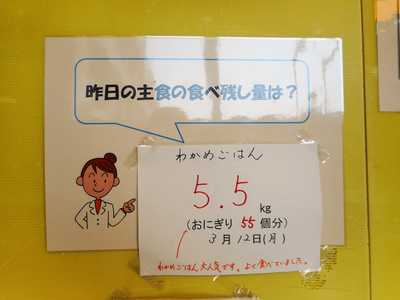 昨日の主食の食べ残し量は？
わかめごはん
5.5 kg
(おにぎり 55 個分)
3月 12日(月)
わかめごはん大人気です。よく食べていました。